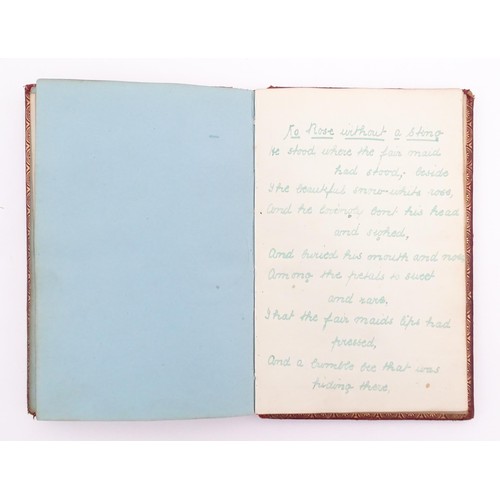 No Rose without a Sting
He stood where the fair maid
had stood, beside
The beautiful snow-white rose,
And he bent his head
and sighed,
And buried his mouth and nose
Among the petals so sweet
and rare,
That the fair maids lips had
pressed,
And a bumble bee that was
hiding there.